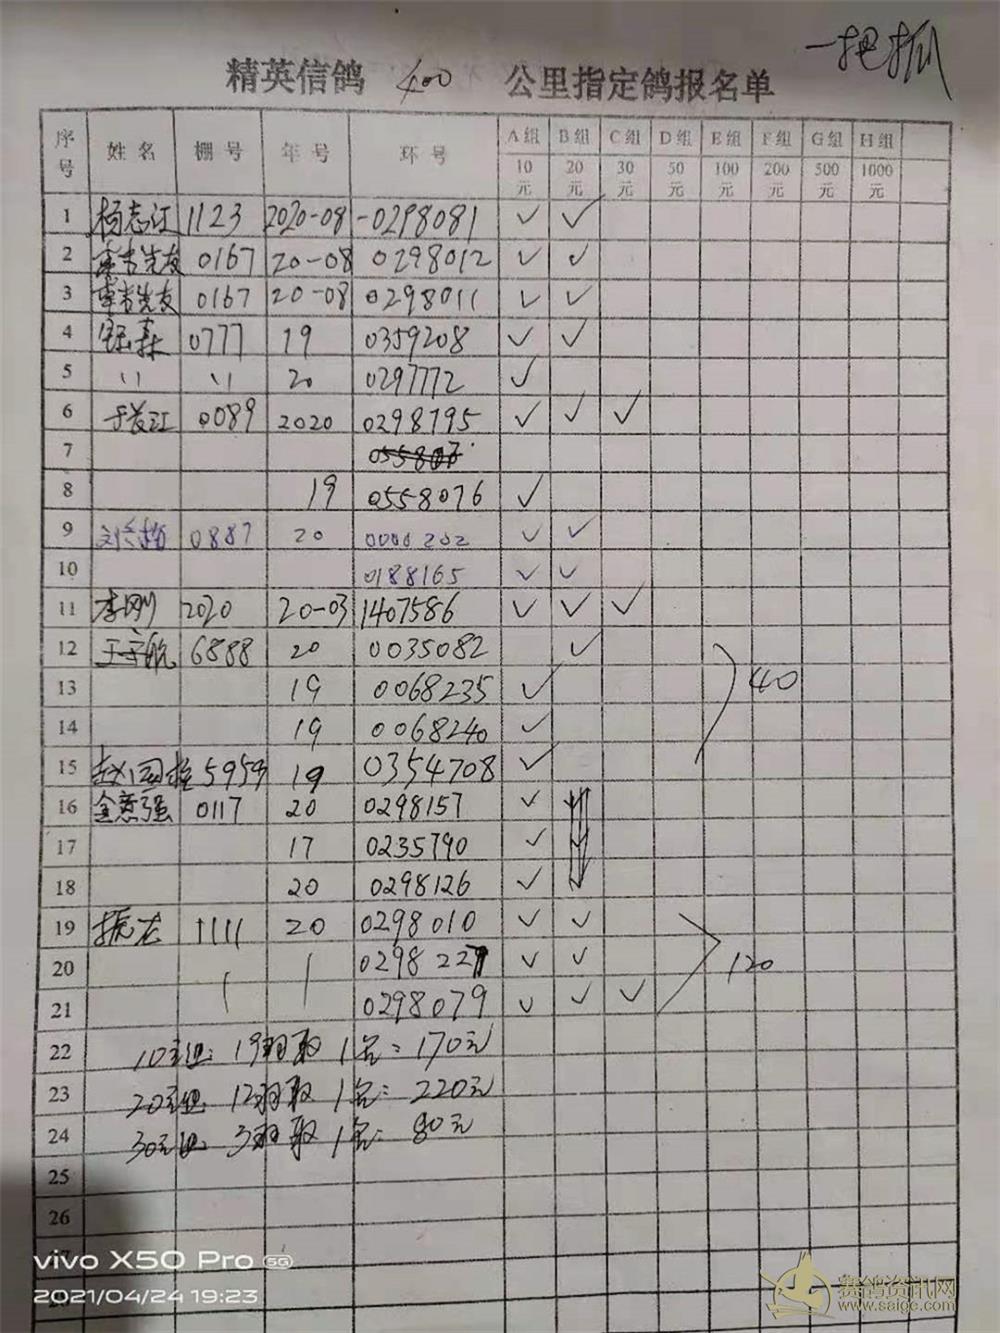 一把抓
精英信鸽 400 公里指定鸽报名单
序号 姓名 棚号 年号 环号 A组 B组 C组 D组 E组 F组 G组 H组
10元 20元 30元 50元 100元 200元 500元 1000元
1 杨志江 1123 2020-08 -0298081 ✓ ✓
2 0167 20-08 0298012 ✓ ✓
3 0167 20-08 0298011 ✓ ✓
4 0777 19 0359208 ✓ ✓
5 〃 〃 20 0297772 ✓
6 于长江 0089 2020 0298795 ✓ ✓ ✓
7
8 19 0558076 ✓
9 0887 20 0000202 ✓ ✓
10 0188165 ✓ ✓
11 李刚 2020 20-03 1407586 ✓ ✓ ✓
12 6888 20 0035082 ✓
13 19 0068235 ✓ 40
14 19 0068240 ✓
15 5959 19 0354708 ✓
16 金意强 0117 20 0298157 ✓
17 17 0235790 ✓
18 20 0298126 ✓
19 振龙 1111 20 0298010 ✓ ✓
20 0298227 ✓ ✓ 120
21 0298079 ✓ ✓ ✓
22 10元组: 19羽取1名: 170元
23 20元组: 12羽取1名: 220元
24 30元组: 3羽取1名: 80元
25
26
vivo X50 Pro 5G
2021/04/24 19:23
赛鸽资讯网
www.saige.com